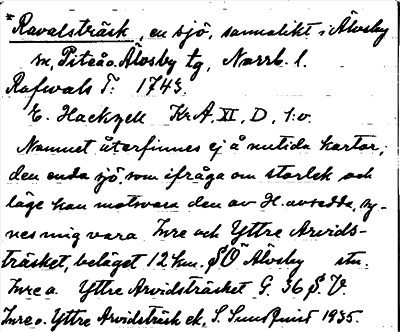 *Ravalsträsk, en sjö, sannolikt i Älvsby
sn, Piteå o. Älvsby tg, Norrb. l.
Rafwals T: 1743.
E. Hackzell KrA, XI, D, 1:o.
Namnet återfinnes ej å nutida kartor;
den enda sjö, som ifråga om storlek och
läge kan motsvara den av H. avsedda, sy-
nes mig vara Inre och Yttre Arvids-
träsket, beläget 12 km. SÖ Älvsby stn.
Inre o. Yttre Arvidsträsket G. 36 S. V.
Inre o. Yttre Arvidsträsk ek. S. Sundquist 1935.